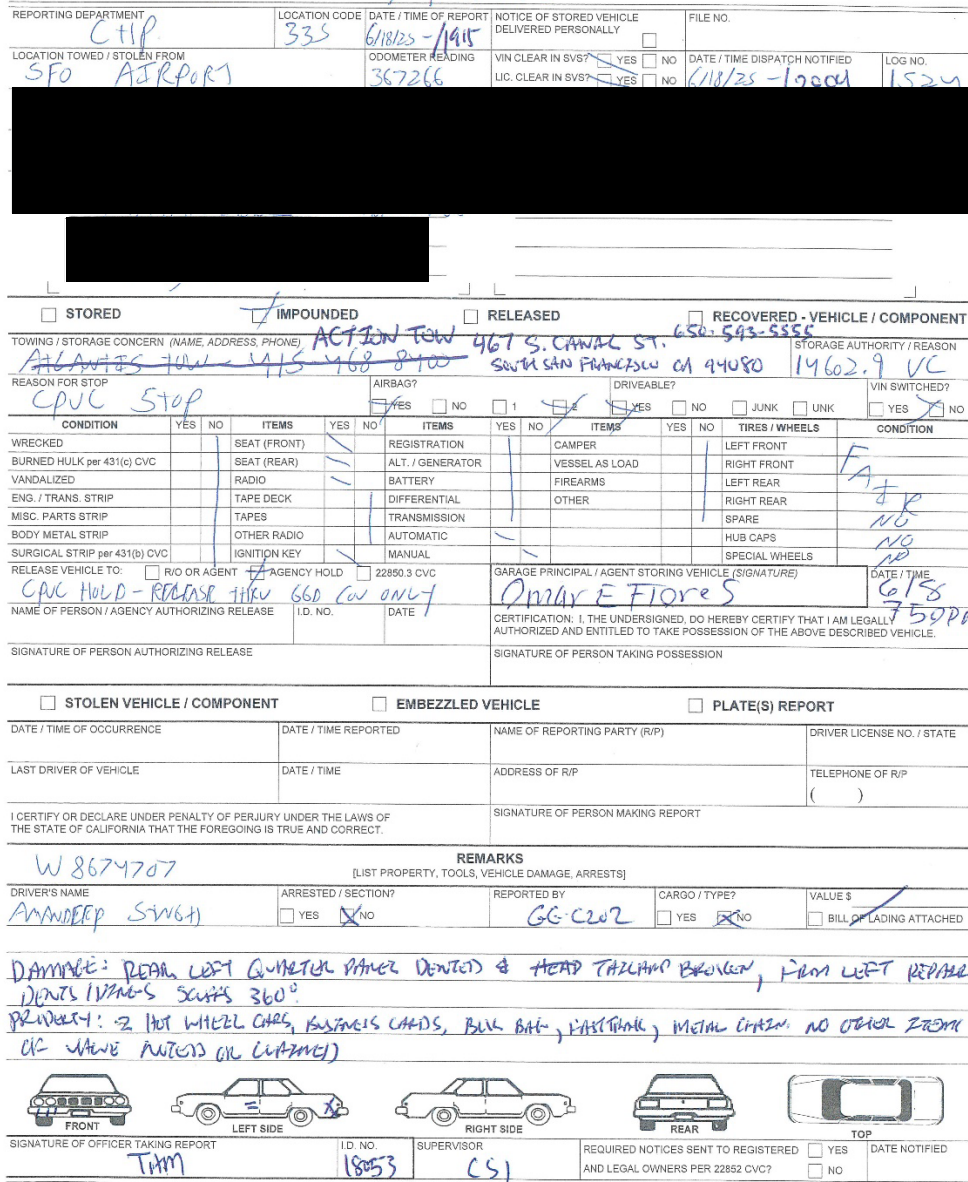 REPORTING DEPARTMENT
CHP
LOCATION CODE
335
DATE / TIME OF REPORT
6/18/25 - /1915
NOTICE OF STORED VEHICLE DELIVERED PERSONALLY
FILE NO.
LOCATION TOWED / STOLEN FROM
SFO AIRPORT
ODOMETER READING
367266
VIN CLEAR IN SVS? YES NO
LIC. CLEAR IN SVS? YES NO
DATE / TIME DISPATCH NOTIFIED
6/18/25 -
LOG NO.
STORED IMPOUNDED RELEASED RECOVERED - VEHICLE / COMPONENT
TOWING / STORAGE CONCERN (NAME, ADDRESS, PHONE)
ACTION TOW 467 S. CANAL ST. 650-593-5555
ATLANTIS TOW - 415 468 8400 SOUTH SAN FRANCISCO CA 94080
STORAGE AUTHORITY / REASON
14602.9 VC
REASON FOR STOP
CPUC STOP
AIRBAG?
YES NO 1 2
DRIVEABLE?
YES NO JUNK UNK
VIN SWITCHED?
YES NO
CONDITION YES NO ITEMS YES NO ITEMS YES NO ITEMS YES NO TIRES / WHEELS CONDITION
WRECKED SEAT (FRONT) REGISTRATION CAMPER LEFT FRONT
BURNED HULK per 431(c) CVC SEAT (REAR) ALT. / GENERATOR VESSEL AS LOAD RIGHT FRONT
VANDALIZED RADIO BATTERY FIREARMS LEFT REAR
FAIR
ENG. / TRANS. STRIP TAPE DECK DIFFERENTIAL OTHER RIGHT REAR
MISC. PARTS STRIP TAPES TRANSMISSION SPARE NO
BODY METAL STRIP OTHER RADIO AUTOMATIC HUB CAPS NO
SURGICAL STRIP per 431(b) CVC IGNITION KEY MANUAL SPECIAL WHEELS NO
RELEASE VEHICLE TO: R/O OR AGENT AGENCY HOLD 22850.3 CVC
CPUC HOLD - RELEASE THRU GGD CVU ONLY
GARAGE PRINCIPAL / AGENT STORING VEHICLE (SIGNATURE)
Omar E Flores
DATE / TIME
6/18
750PM
NAME OF PERSON / AGENCY AUTHORIZING RELEASE I.D. NO. DATE
CERTIFICATION: I, THE UNDERSIGNED, DO HEREBY CERTIFY THAT I AM LEGALLY
AUTHORIZED AND ENTITLED TO TAKE POSSESSION OF THE ABOVE DESCRIBED VEHICLE.
SIGNATURE OF PERSON AUTHORIZING RELEASE
SIGNATURE OF PERSON TAKING POSSESSION
STOLEN VEHICLE / COMPONENT EMBEZZLED VEHICLE PLATE(S) REPORT
DATE / TIME OF OCCURRENCE DATE / TIME REPORTED NAME OF REPORTING PARTY (R/P) DRIVER LICENSE NO. / STATE
LAST DRIVER OF VEHICLE DATE / TIME ADDRESS OF R/P TELEPHONE OF R/P
( )
I CERTIFY OR DECLARE UNDER PENALTY OF PERJURY UNDER THE LAWS OF
THE STATE OF CALIFORNIA THAT THE FOREGOING IS TRUE AND CORRECT.
SIGNATURE OF PERSON MAKING REPORT
W 8674707
REMARKS
[LIST PROPERTY, TOOLS, VEHICLE DAMAGE, ARRESTS]
DRIVER'S NAME
AMANDEEP SINGH
ARRESTED / SECTION?
YES NO
REPORTED BY
GG-C202
CARGO / TYPE?
YES NO
VALUE $
BILL OF LADING ATTACHED
DAMAGE: REAR LEFT QUARTER PANEL DENTED & HEAD TAILLAMP BROKEN, LEFT REPAIR
DENTS / DINGS SCUFFS 360°
PROPERTY: 2 HOT WHEEL CARS, BUSINESS CARDS, BAG, FASTTRAK, METAL CHAIN. NO OTHER ITEMS
OF VALUE NOTED OR CLAIMED
FRONT LEFT SIDE RIGHT SIDE REAR TOP
SIGNATURE OF OFFICER TAKING REPORT
THM
I.D. NO.
18053
SUPERVISOR
CSI
REQUIRED NOTICES SENT TO REGISTERED
AND LEGAL OWNERS PER 22852 CVC?
YES
NO
DATE NOTIFIED